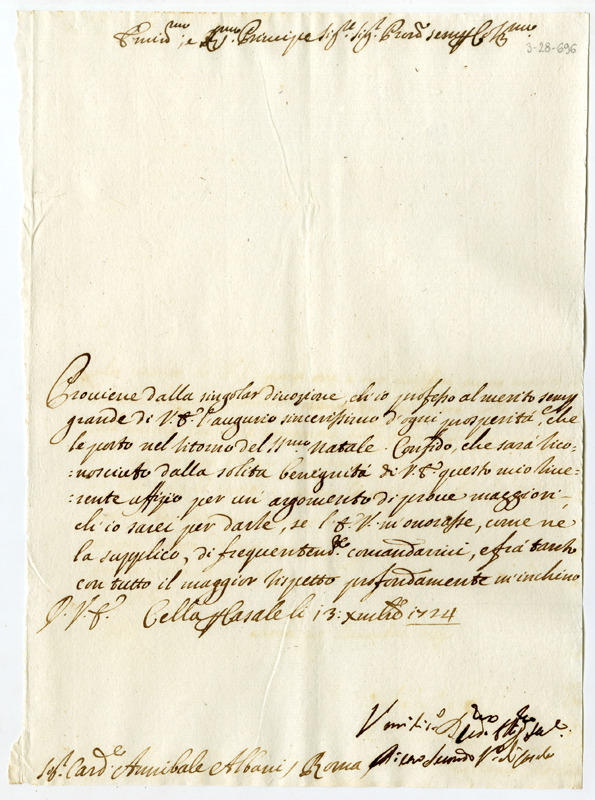 Em.mo, e R.mo Principe Sig.r Sig.r Pron. semp Col.mo
3-28-696
Proviene dalla singolar divozione, ch'io professo al merito semp
grande di V. E. l'augurio sincerissimo d'ogni prosperità, che
le porto nel ritorno del SS.mo Natale. Confido, che sarà rico-
:nosciuto dalla solita benegnità di V. E. questo mio rive-
:rente uffizio per un' argomento di prove maggiori,
ch'io sarei per darle, se l'E. V. m'onorasse, come ne
la supplico, di frequentend. comandarmi, e frà tanto
con tutto il maggior rispetto profondamente m'inchino
D. V. E. Cella Casale li 13: Xmbre 1724
Sig. Card.e Annibale Albani / Roma